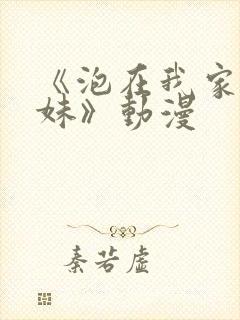 《泡在我家的妹
妹》動漫
秦若虚